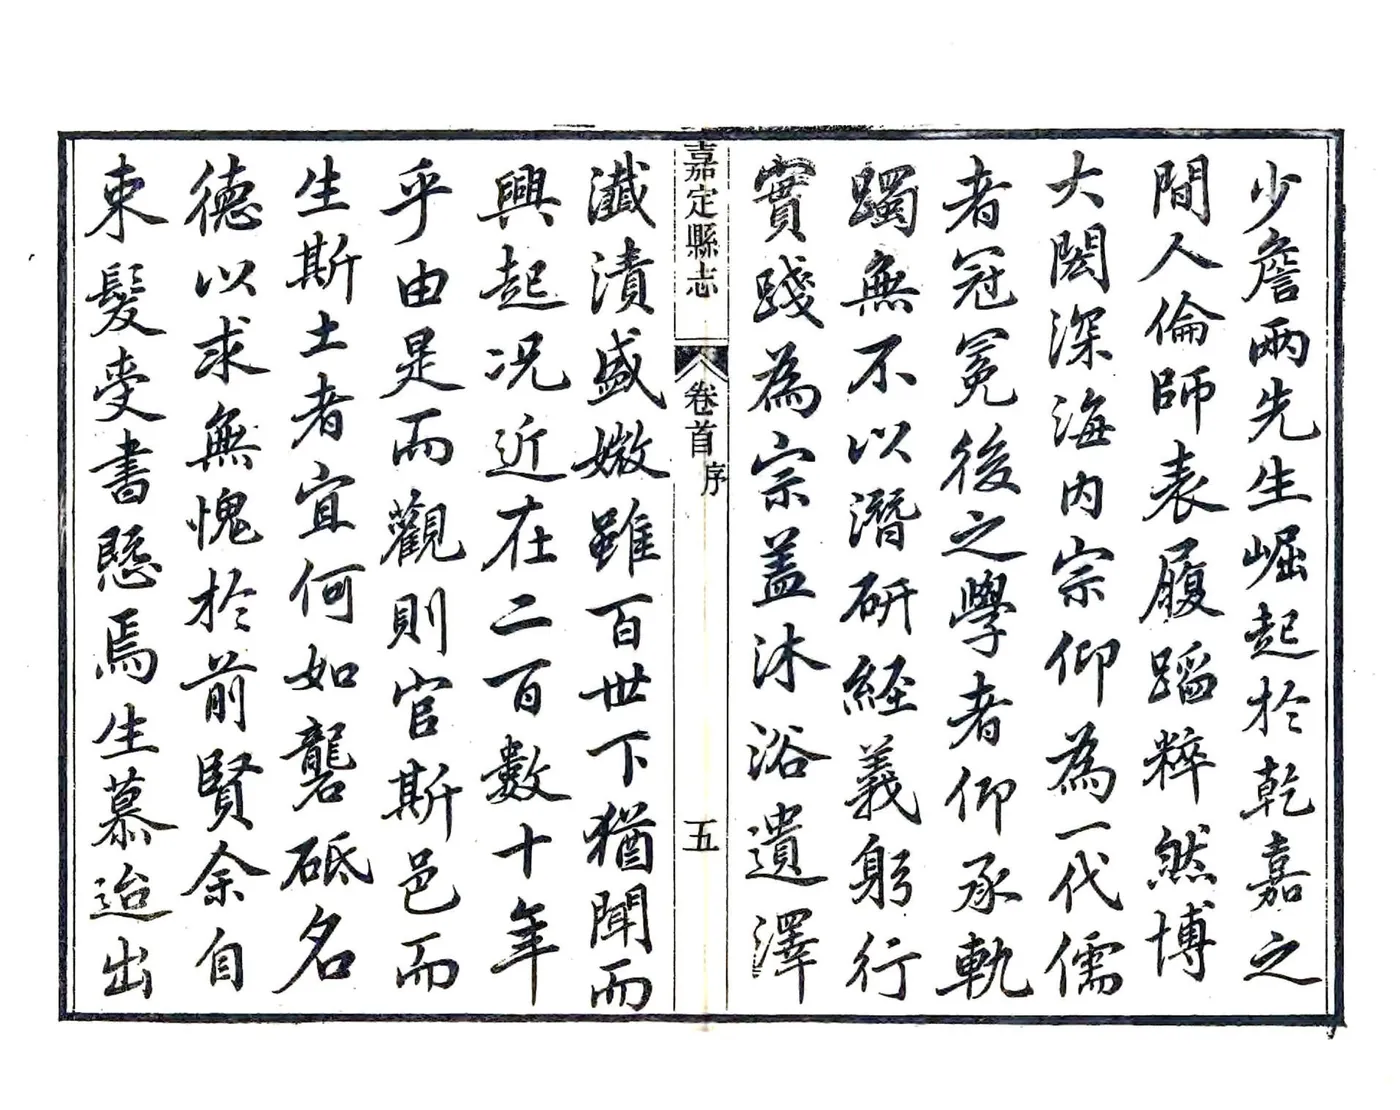 少詹兩先生崛起於乾嘉之
間人倫師表履蹈粹然博
大閎深海内宗仰為一代儒
者冠冕後之學者仰承軌
躅無不以潛研經義躬行
實踐為宗蓋沐浴遺澤
嘉定縣志
卷首
序
五
瀸漬盛媺雖百世下猶聞而
興起况近在二百數十年
乎由是而觀則官斯邑而
生斯土者宜何如礱砥名
德以求無愧於前賢余自
束髮受書懸焉生慕迨出